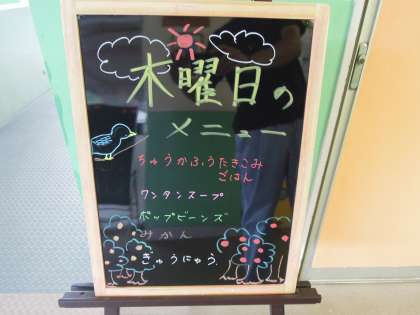 木曜日の
メニュー
ちゅうかふうたきこみ
ごはん
ワンタンスープ
ポップビーンズ
みかん
ぎゅうにゅう